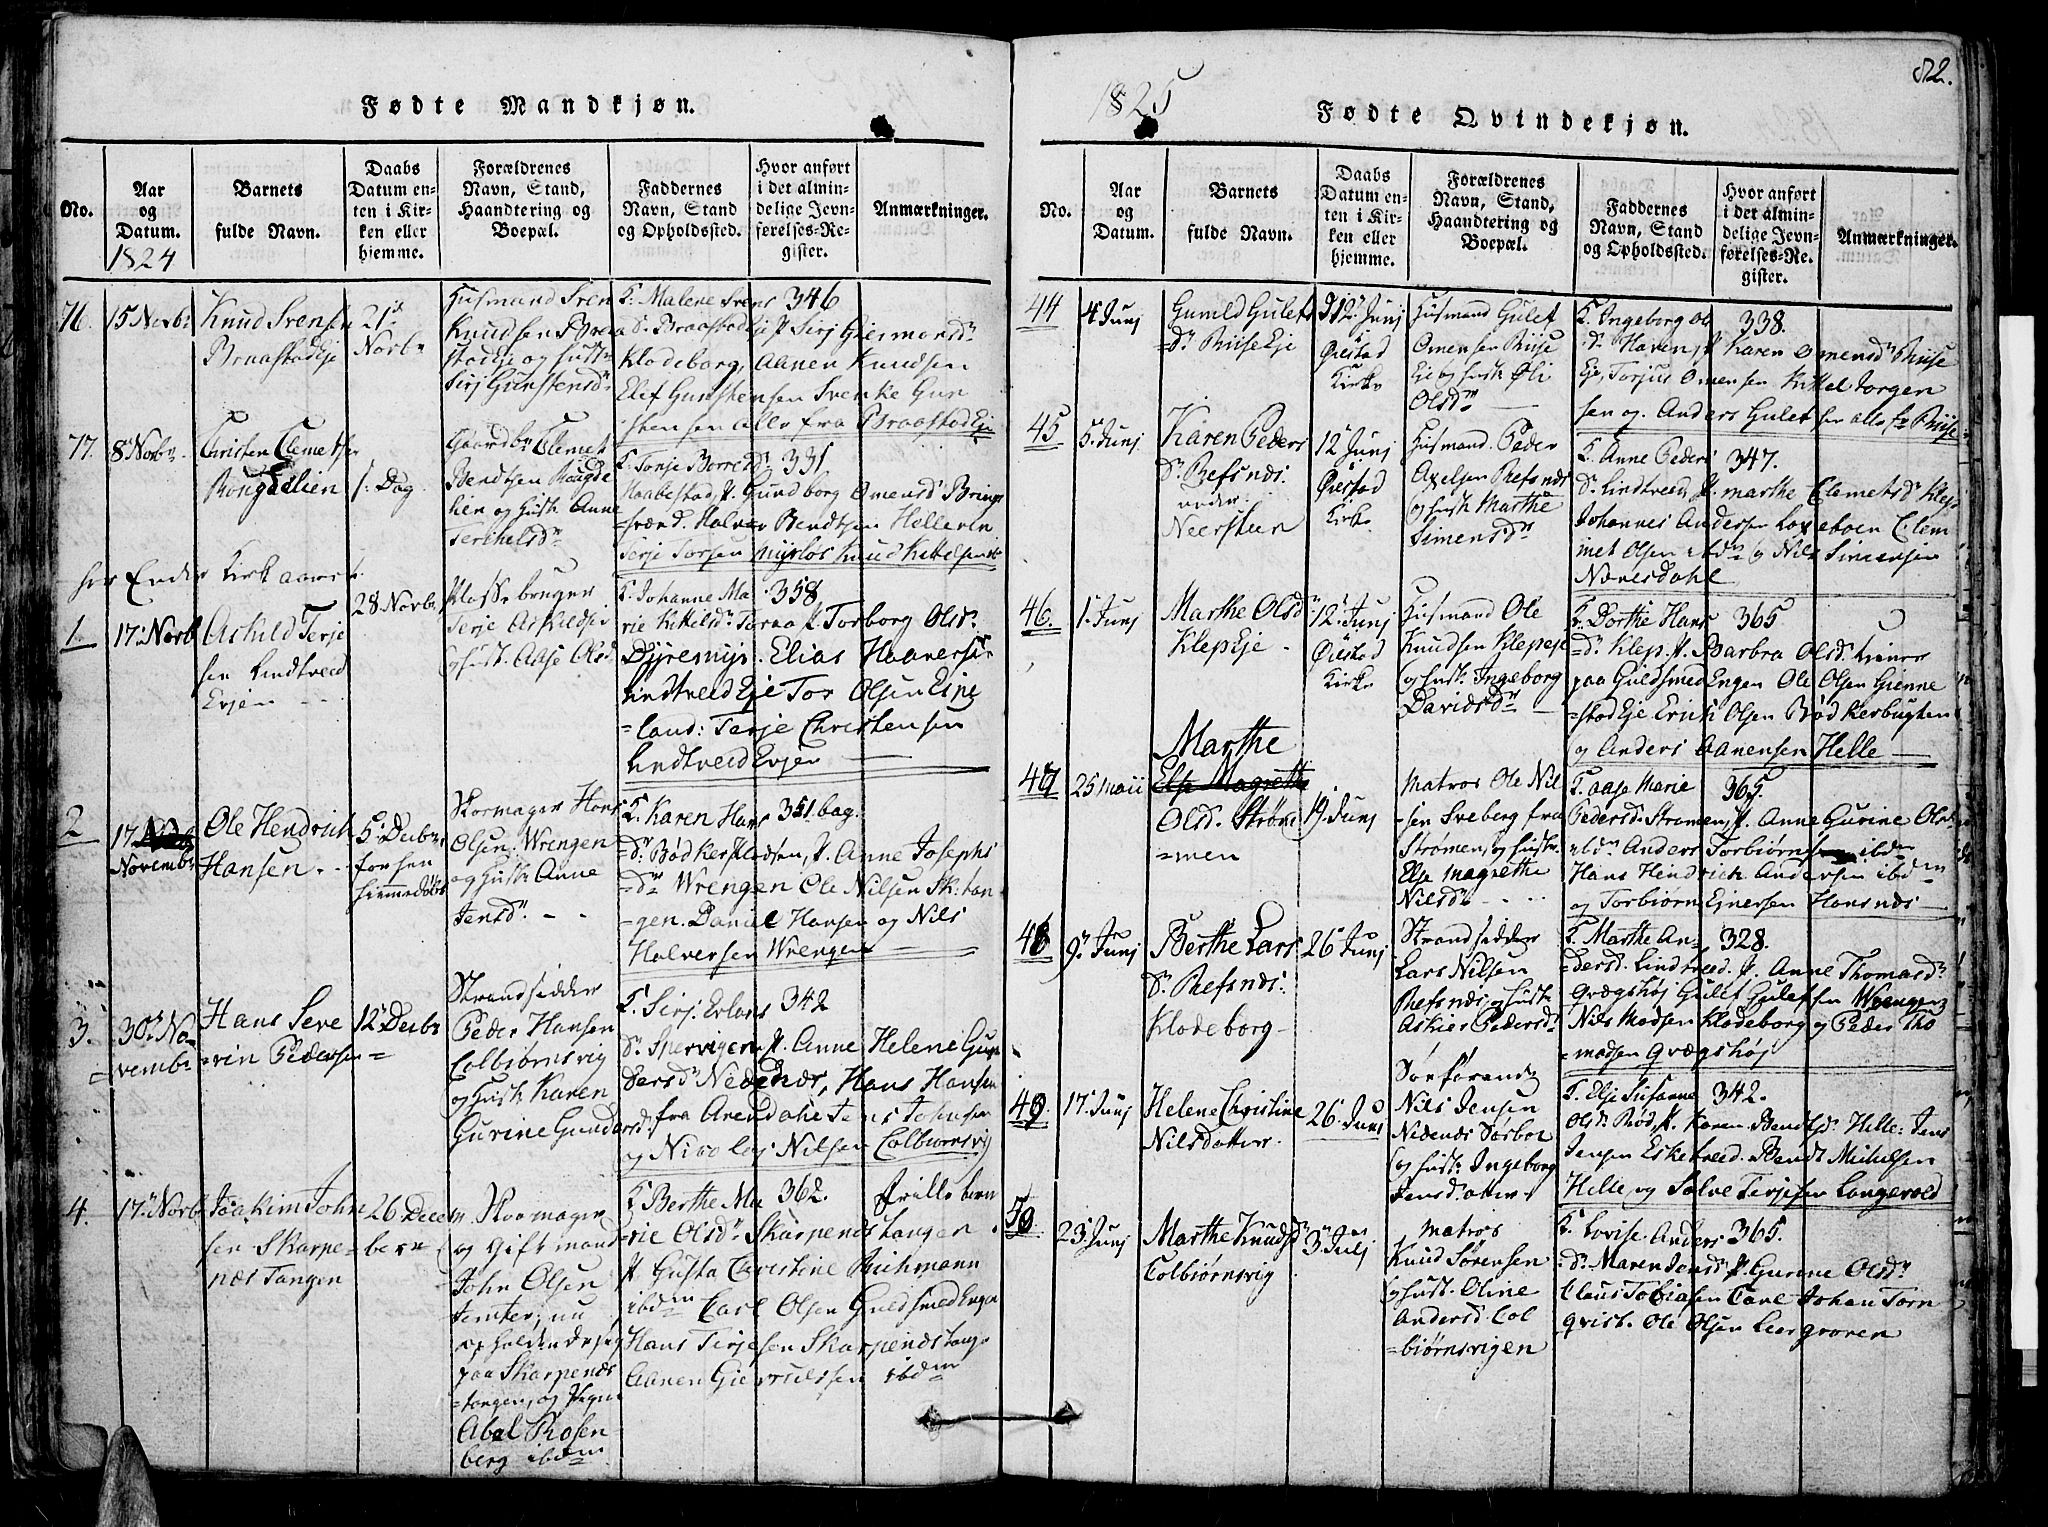 Fødte Mandkjøn.
No.
Aar og Datum.
1824
Barnets fulde Navn.
Daabs Datum enten i Kirken eller hjemme.
Forældrenes Navn, Stand, Haandtering og Boepæl.
Faddernes Navn, Stand og Opholdssted.
Hvor anført i det almindelige Jevnførelses-Register.
Anmærkninger.
76.
15 Novbr
Knud Svensen
Braastad Eje
21d
Novbr
Husmand Sven
Knudsen Braa
stad Eje og Hustr
Sirj Gunstensdr
F. Malene Svens 346
Dr Braastad Eje P. Sirj Giermondsdr
Klodeborg, Aanen Knudsen
Elif Gunstensen Svenke Gun
stensen alle fra Braastad Eje
77.
8 Novbr
Christen Clemetsen
Rongdelien
1. Dag
Gaardbr Clemet
Bendtsen Rongde
lien og Hustr Anne
Terchelsdr
F. Tonje Borresdr 331
Haabestad, P. Gundborg Omensdr Brings
værd. Halvor Bendtsen Helleren
Terje Torsen Myrlos Knud Kittelsen
her Ender Kirkaaret.
1
17. Novb
Askild Terje
sen Lindtveid
Ejen
28 Novbr
Plassebruger
Terje Askildsen
og Hust. Aase Olsd
F. Johanne Ma 358
rie Kittelsdr Toraa P. Torborg Olsdr
Dyresmyr. Elias Haaversen
Lindtveid Eje Tor Olsen Espe
land: Terje Christensen
Lindtveid Ejen
2
17
November
Ole Hendrich
Hansen
5. Decbr
forhen
hiemmedøbt
Skomager Hans
Olsen Wrengen
og Hustr Anne
Jensdr
F. Karen Hans 351 bag.
Dr Bødkerpladsen, P. Anne Josephs
dr Wrengen Ole Nilsen Sk: tan
gen. Daniel Hansen og Nils
Halversen Wrengen
3.
30. No
vembr
Hans Seve
rin Pedersen
12 Decbr
Strandsidder
Peder Hansen
Colbiørnsvig
og Hustr Karen
Gurine Gundersd.
F. Sirj. Erlans 342
Dr Spervigen P. Anne Helene Gun
dersdr Nedenæs, Hans Hansen
fra Arendahl Jens Johnsen
og Nicolay Nilsen Colbiørnsvig
4.
17. Novb
Joakim John
sen Skarpe
næs Tangen
26 Decem
ber
Skomager
og Gift mand
John Olsen
Jemter, nu
opholdende sig
paa Skarpenæs
tangen, og Pigen
Abel Rosen
berg ibdm
F. Berthe Ma 362.
rie Olsdr Skarpenæstangen
P. Gusta Christine Richmann
ibdm Carl Olsen Guldsmed Engen
Hans Terjesen Skarpenæstange
Aanen Gierulfsen ibdm
Frillebarn
1825
82.
Fødte Qvindekjøn.
No.
Aar og Datum.
Barnets fulde Navn.
Daabs Datum enten i Kirken eller hjemme.
Forældrenes Navn, Stand, Haandtering og Boepæl.
Faddernes Navn, Stand og Opholdssted.
Hvor anført i det almindelige Jevnførelses-Register.
Anmærkninger.
44
4 Junj
Gunild Gulets
Dr Riise Eje
D 12. Junj
Øiestad
Kirke
Husmand Gulef
Omensen Riise
Eje og Hustr Øli
Olsdr
F. Ingeborg Ols 338.
Dr Haven, P. Karen Omensdr Riise
Eje, Torjus Omensen Kittel Jørgen
sen og Anders Gulefsen alle fr Riise
45
5. Junj
Karen Peders
Dr Refsnæs
under
Neersteen
12 Junj
Øiestad
Kirke
Husmand. Peder
Axelsen Refsnæs
og Hustr Marthe
Simensdr
F. Anne Peders 347.
Dr Lindtveed, P. Marthe Clemetsdr Klep
Johannes Andersen Løxeboen Clem
met Olsen ibdm og Nils Simensen
Næresdahl
46.
1. Junj
Marthe Olsdr
Klep Eje
12. Junj
Øiestad
Kirke
Husmand Ole
Knudsen Klepeje
og Hustr Ingeborg
Davidsdr
F. Dorthe Hans 365
Dr Klep P. Barbra Olsd. tiener
paa Guldsmed Engen Ole Olsen Gienne
stad Eje Erich Olsen Bødkerbugten
og Anders Aanensen Helle
47
25 Maii
Marthe
Else Magrethe
Olsd. Strøm
men
19. Junj
Matros Ole Nil
sen Sveberg fra
Strømen, og Hustr
Else Magrethe
Nilsdr
F. Aase Marie 365.
Pedersd. Strømen, P. Anne Gurine Olsdr
ibdm Anders Torbiørnsen ibdm
Hans Hendrich Andersen ibdm
og Torbiørn Ejnersen Hansnæs
48
9. Junj
Berthe Lars
Dr Refsnæs.
Klodeborg
26 Junj
Strandsidder
Lars Nilsen
Refsnæs, og Hustr
Askier Pedersdr
F. Marthe An 328.
dersd. Lindtveed. P. Anne Thomasdr
Grægshøj Gulef Gulefsen Wrengen
Nils Madsen Klodeborg og Peder Tho
masen Grægshøj
49.
17. Junj
Helene Christine
Nilsdatter.
26. Junj
Sørførende
Nils Jensen
Nedenæs Sørboe
og Hustr Ingeborg
Jensdatter
F. Elje Susanne 342.
Olsdr Bød, P. Karen Bendtsdr Helle. Jens
Jensen Esketveed. Bendt Michelsen
Helle og Salve Terjesen Langevold
50
23. Junj
Marthe Knudsd
Colbiørnsvig
3. Julj
Matros
Knud Sørensen
og Hust. Oline
Andersd. Col
biørnsvigen
F. Lovise Anders 365.
Dr Maren Jensdr P. Gurine Olsdr
Claus Tobiasen Carl Johan Torn
qvist. Ole Olsen Leergroven